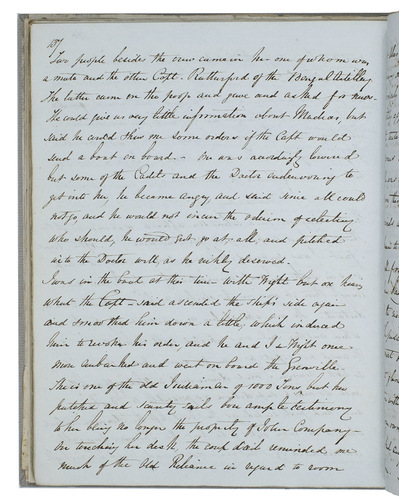 137
Two people besides the crew came in her one of whom was
a mate and the other Capt. Rutherford of the Bengal Artillery
The latter came on the poop and gave and asked for news.
He could give us very little information about Madras, but
said he could shew me some orders if the Capt would
send a boat on board - One was accordingly lowered
but some of the Cadets and the Doctor endeavouring to
get into her, he became angry and said since all could
not go, and he would not incur the odium of selecting
who should, he would not go at all, and pitched
into the Doctor well, as he richly deserved.
I was in the boat at this time with Wight but on hearing
what the Capt - said ascended the ship's side again
and smoothed him down a little, which induced
him to revoke his order, and he and I & Wight once
more embarked and went on board the Grenville.
She is one of the old Indiamen of 1000 Tons, but her
patched and scanty sails bore ample testimony
to her being no longer the property of John Company -
On touching her deck, the coup d'oeil reminded me
much of the Old Reliance in regard to room